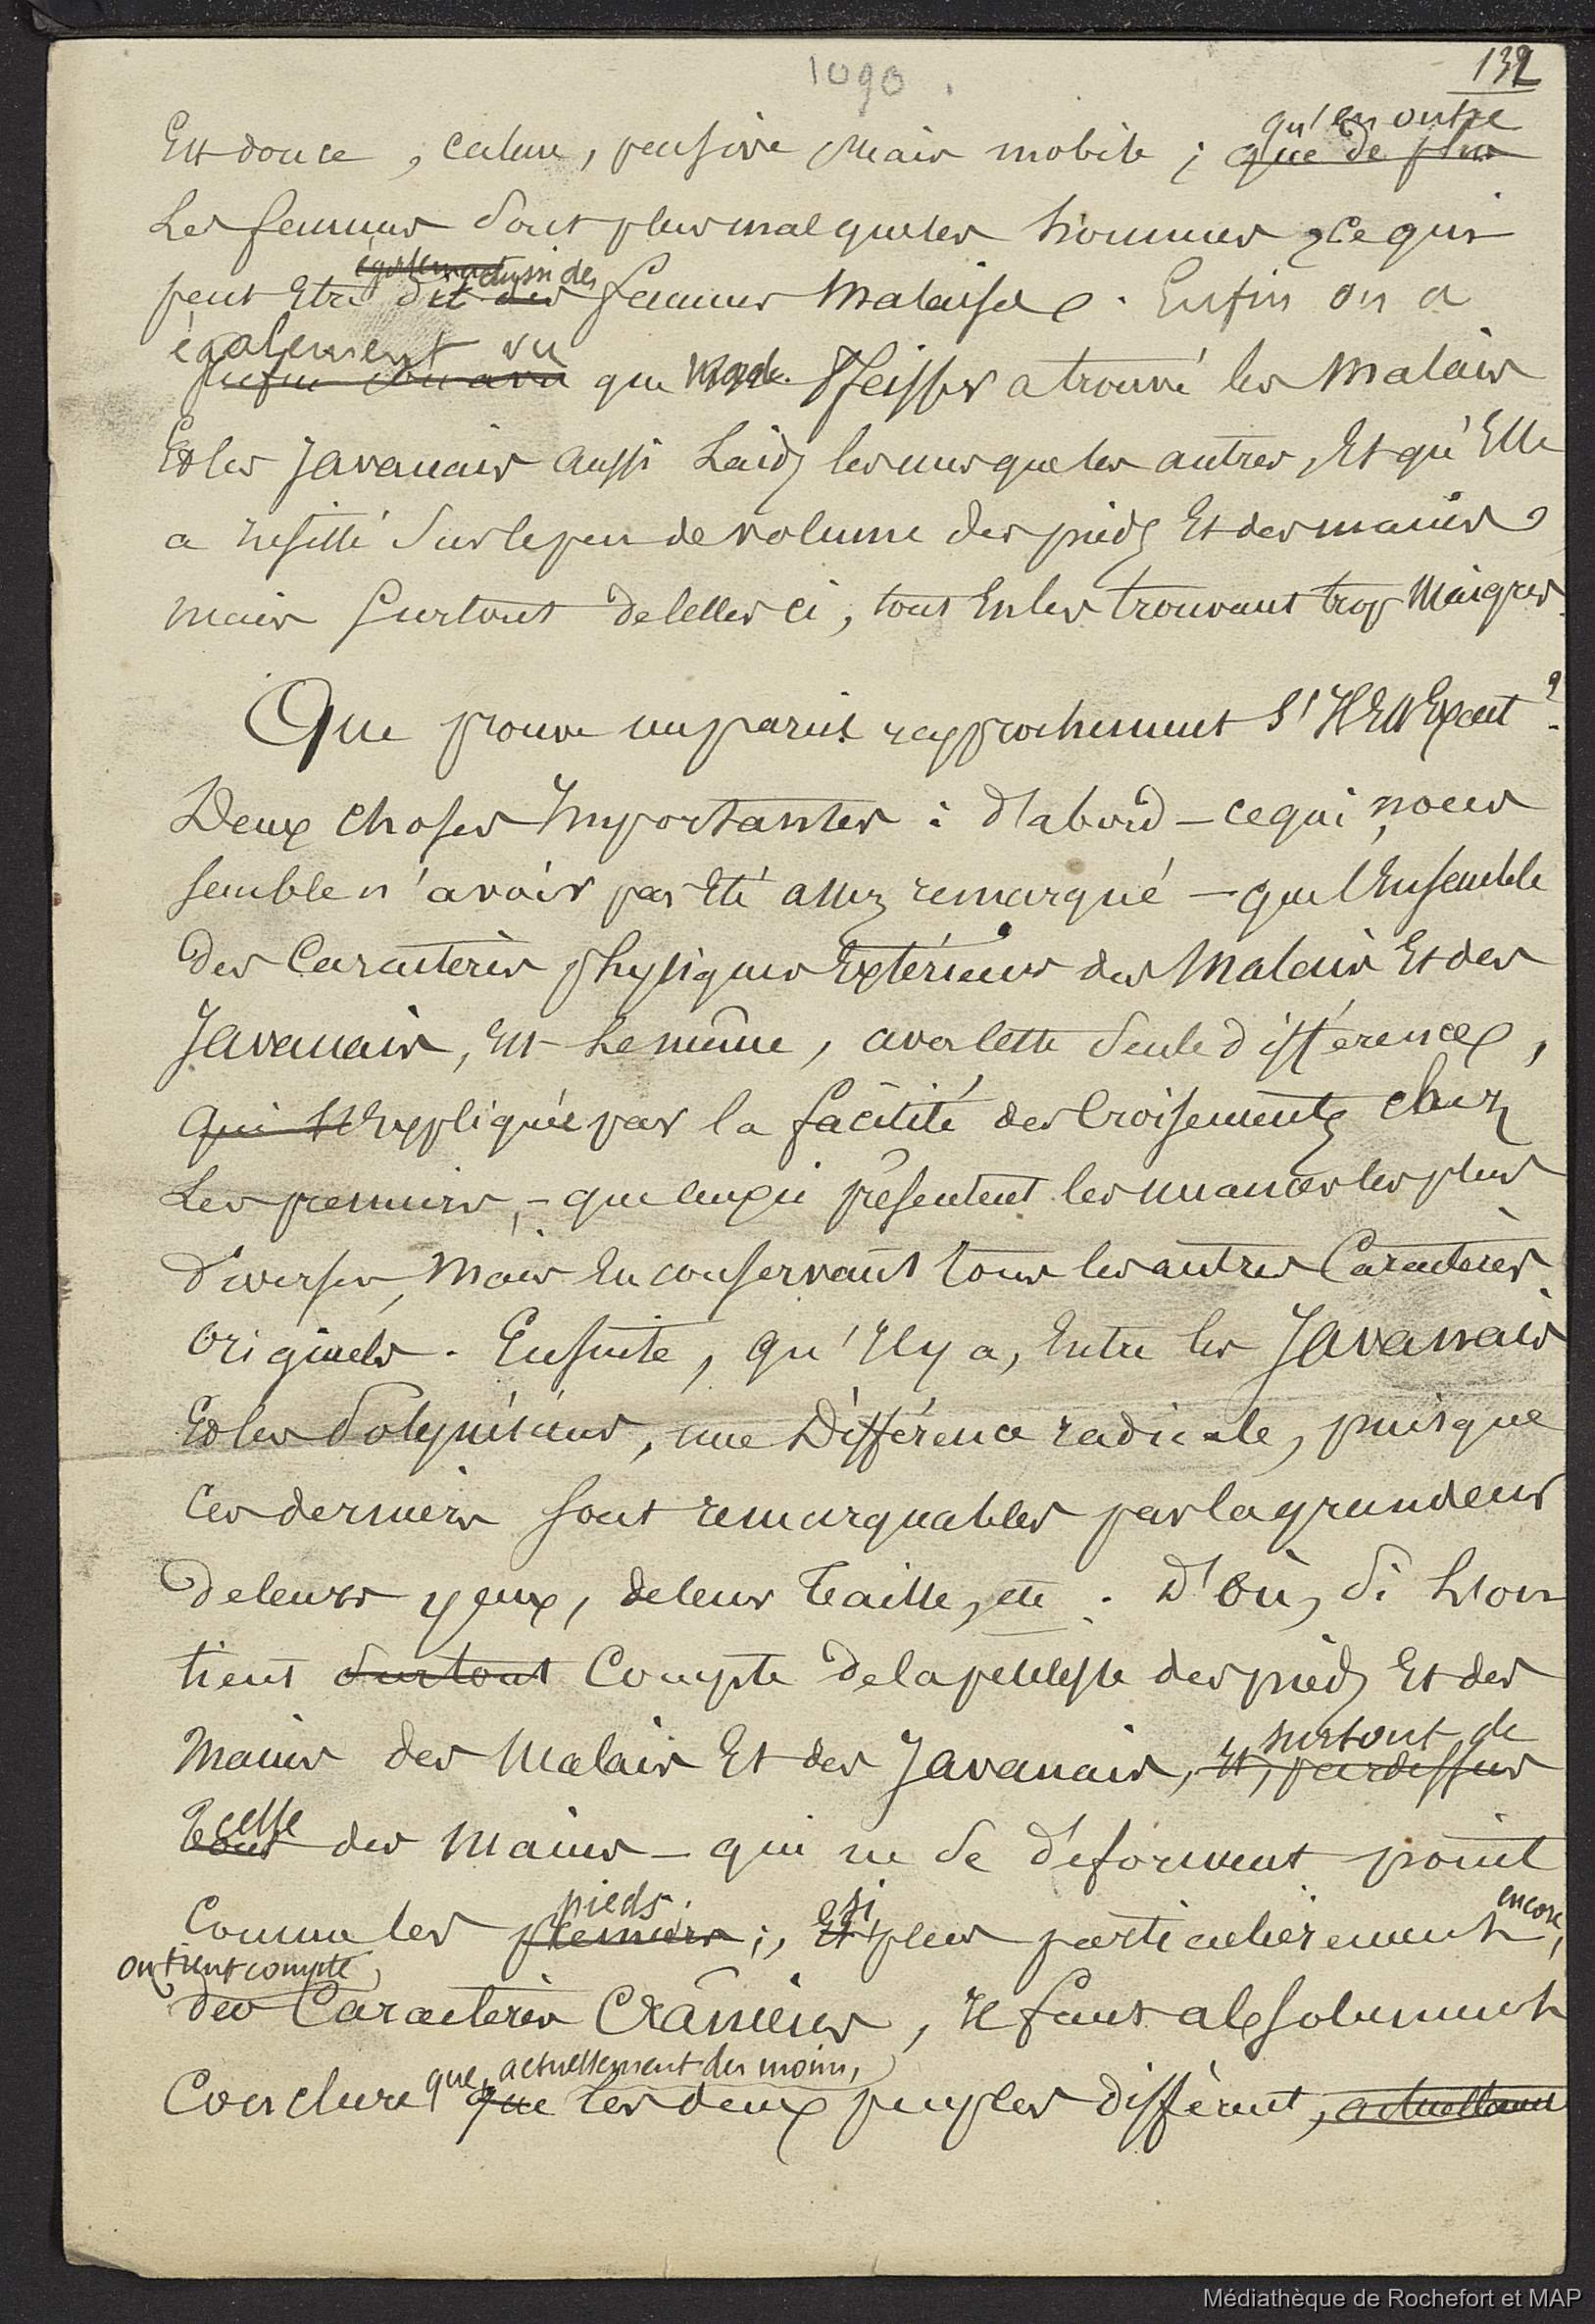 1090.
132
qu'en outre
Est douce, calme, pensive mais mobile; que de plus
Les femmes sont plus mal que les hommes, Ce qui
également aussi des
peut Etre dit des femmes Malaises. Enfin on a
également vu
Enfin on a vu que Mad. Pfeiffer a trouvé les Malais
Et les Javanais aussi Laids les uns que les autres, Et qu'Elle
a Insisté Sur le peu de volume des pieds Et des mains,
mais surtout de Celles ci, tout En les trouvant trop Maigres.
Que prouve un pareil rapprochement S'Il Est Exact ?
Deux choses Importantes : d'abord – ce qui nous
semble n'avoir pas Eté assez remarqué – que l'Ensemble
des Caractères physiques Extérieurs des Malais Et des
Javanais, Est le même, avec cette seule différence,
qui s'Expliquée par la facilité des Croisements chez
Les premiers, – que ceux ci présentent les nuances les plus
diverses, Mais En conservant tous les autres Caractères
Originels. Ensuite, qu'Il y a, Entre les Javanais
Et les Polynésiens, une Différence radicale, puisque
Ces derniers sont remarquables par la grandeur
de leurs yeux, de leur taille, etc. D'où, Si L'on
tient surtout Compte de la petitesse des pieds Et des
surtout de
Mains des Malais Et des Javanais, Et, par dessus
celle
tout des Mains – qui ne se déforment point
pieds si encore,
Comme les premiers ;, Et plus particulièrement,
on tient compte
des Caractères Crâniens, Il faut absolument
que, actuellement du moins,
Conclure que les deux peuples différent, actuellement
Médiathèque de Rochefort et MAP